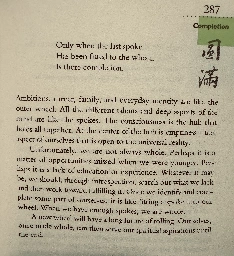 287
Completion
圓
滿
Only when the last spoke
Has been fitted to the wheel
Is there completion.
Ambitions, career, family, and everyday identity are like the
outer wheel. All the different talents and deep aspects of the
are like the spokes. The consciousness is the hub that
holes all together. At the center of the hub is emptiness the
aspect of ourselves that is open to the universal reality.
Unfortunately, we are not always whole. Perhaps it is a
matter of opportunities missed when we were younger. Per-
haps it is a lack of education or experience. Whatever it may
be, we should, through introspection, search out what we lack
and then work toward fulfilling it. Once we identify and com-
plete some part of ourselves, it is like fitting a spoke to our
wheel. When we have enough spokes, we are whole.
A new wheel will have a long future of rolling. Our selves,
once made whole, can then serve our spiritual aspirations until
the end.